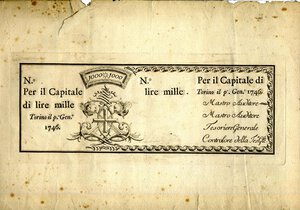 N.º
Per il Capitale
di lire mille
Torino il pº. Genº.
1746.
1000 1000
N.º
lire mille.
Per il Capitale di
Torino il pº. Genº. 1746.
Mastro Auditore
Mastro Auditore
Tesoriere Generale
Controlore della Tesor